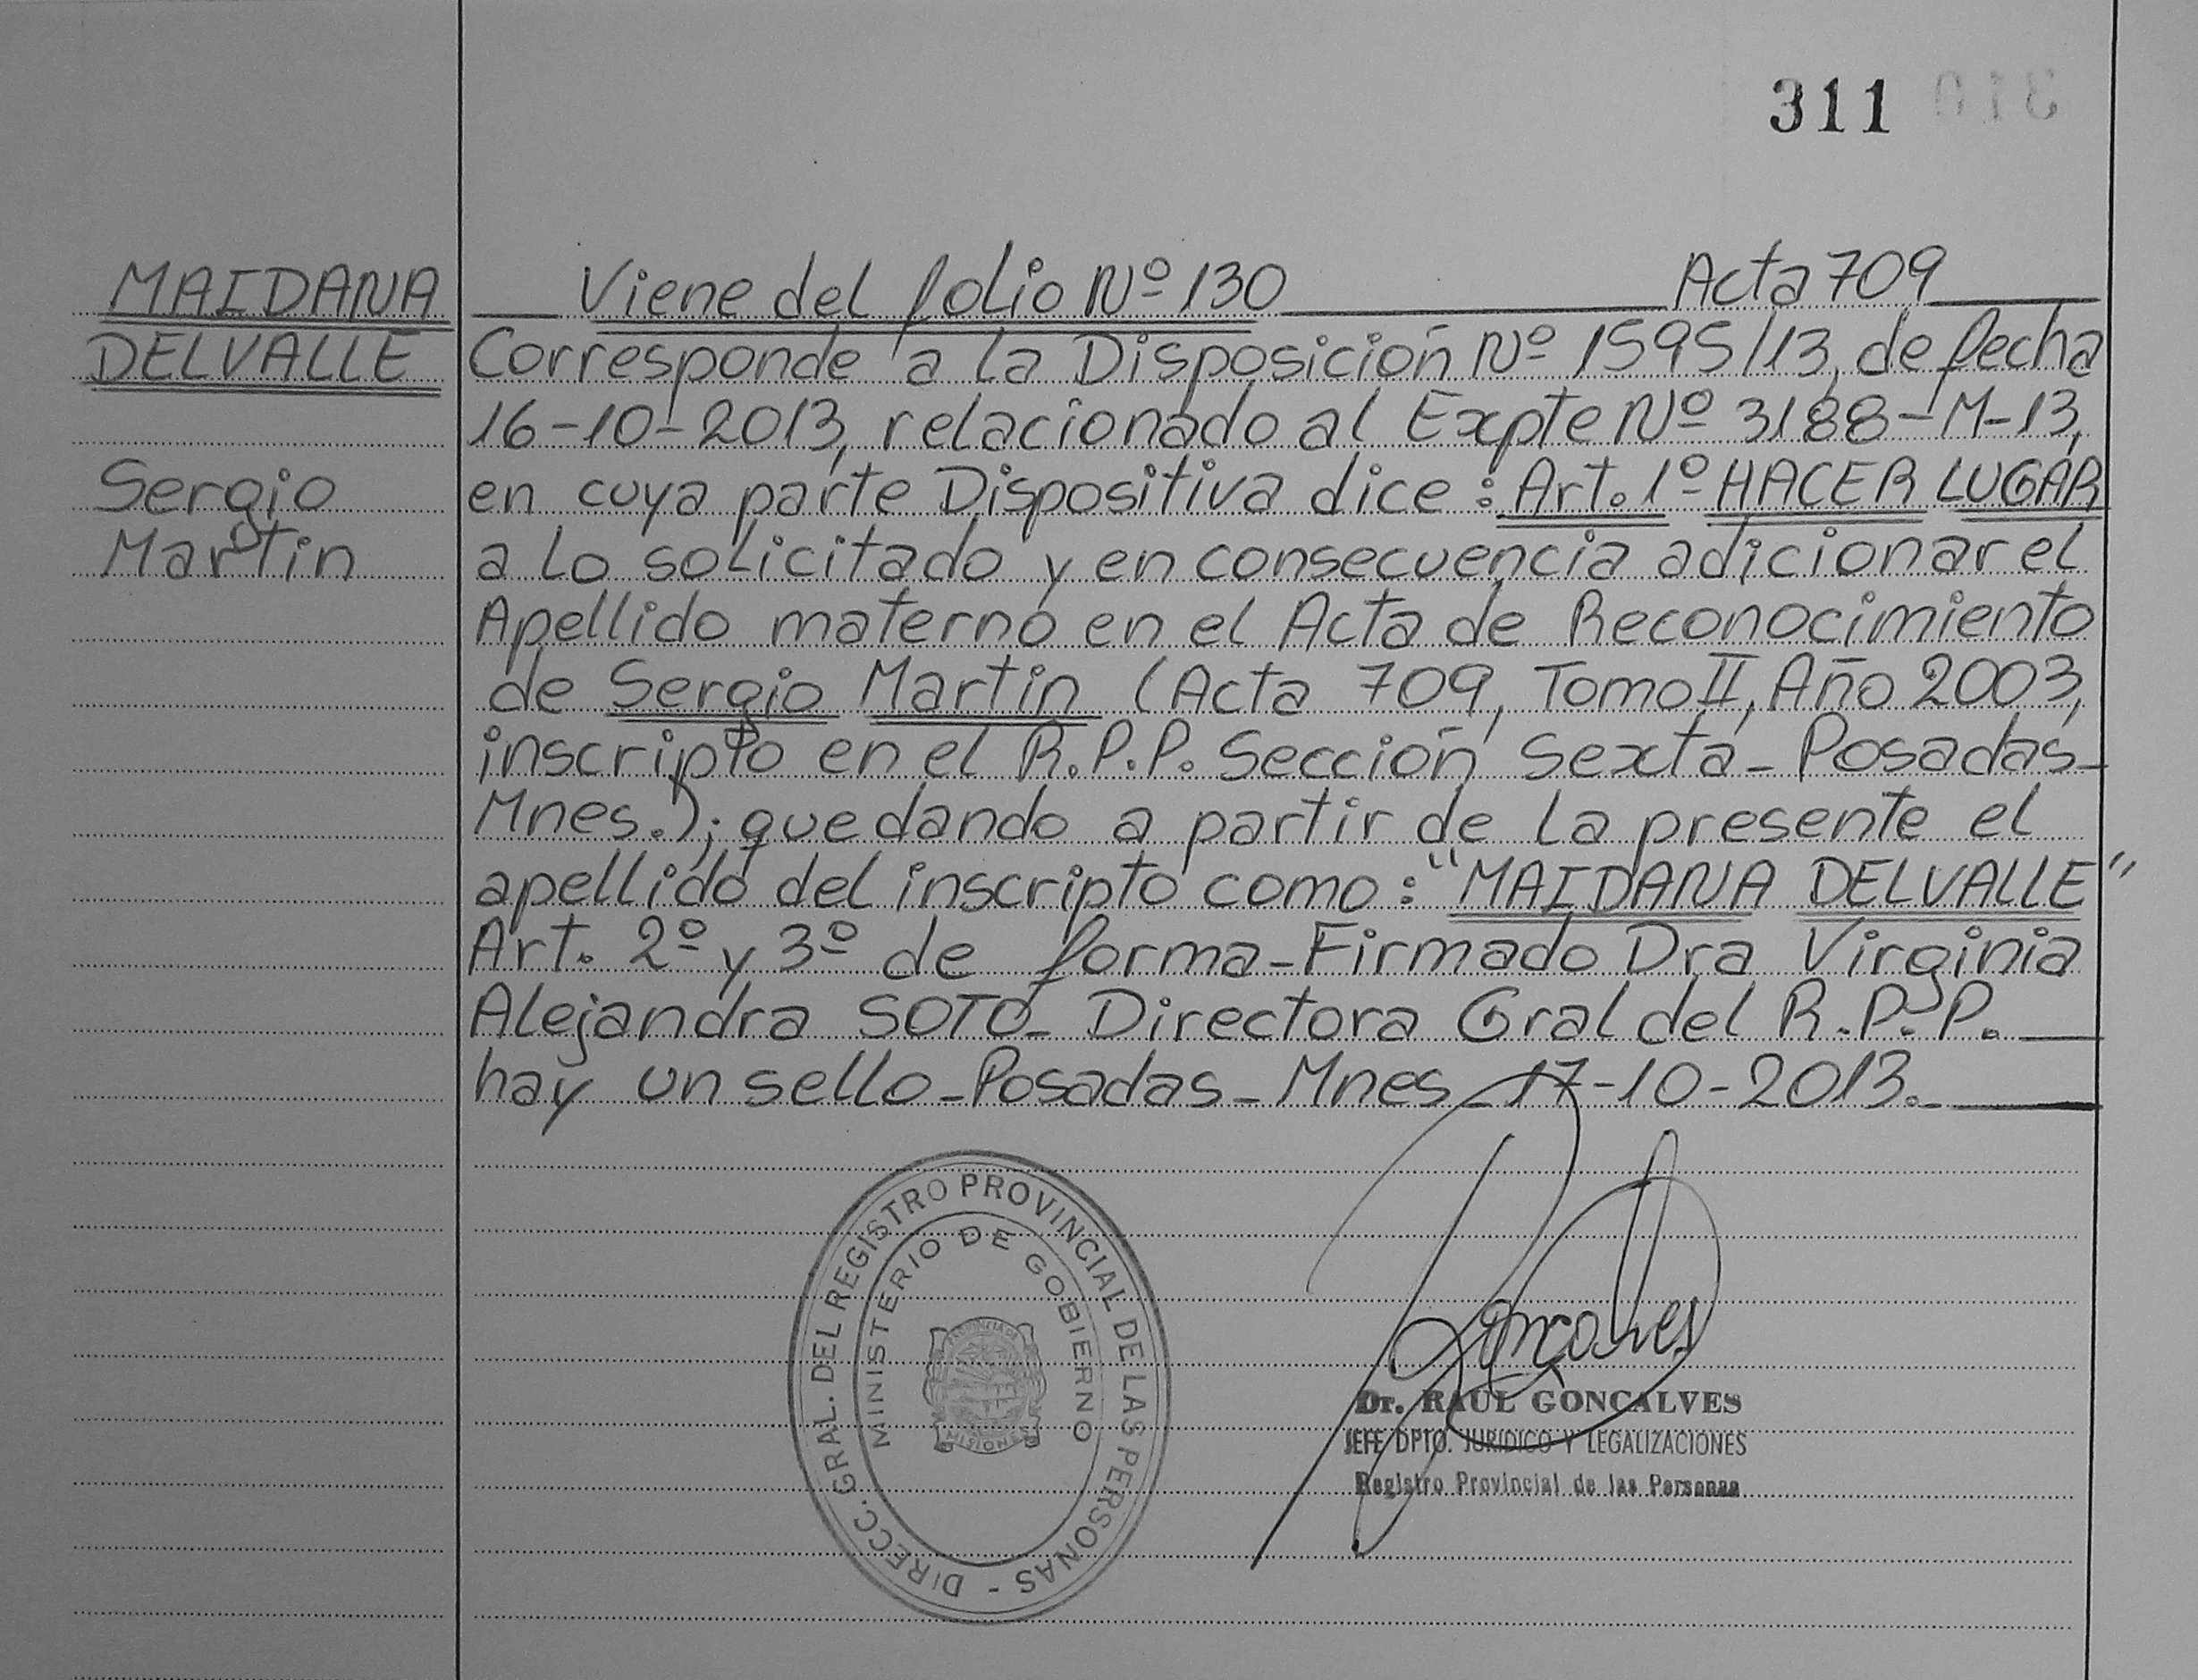 311 310
MAIDANA
DELVALLE
Sergio
Martin
Viene del folio Nº 130 Acta 709
Corresponde a la Disposición Nº 1595/13, de fecha
16-10-2013, relacionado al Expte Nº 3188-M-13,
en cuya parte Dispositiva dice: Art. 1º HACER LUGAR
a lo solicitado y en consecuencia adicionar el
Apellido materno en el Acta de Reconocimiento
de Sergio Martin (Acta 709, Tomo II, Año 2003,
inscripto en el R.P.P. Sección Sexta - Posadas-
Mnes.); quedando a partir de la presente el
apellido del inscripto como: "MAIDANA DELVALLE"
Art. 2º y 3º de forma-Firmado Dra Virginia
Alejandra SOTO- Directora Gral del R.P.P.
hay un sello-Posadas-Mnes-17-10-2013.-
DIRECC. GRAL. DEL REGISTRO PROVINCIAL DE LAS PERSONAS -
MINISTERIO DE GOBIERNO
PROVINCIA DE
MISIONES
Gonçalves
Dr. RAUL GONCALVES
JEFE DPTO. JURIDICO Y LEGALIZACIONES
Registro Provincial de las Personas